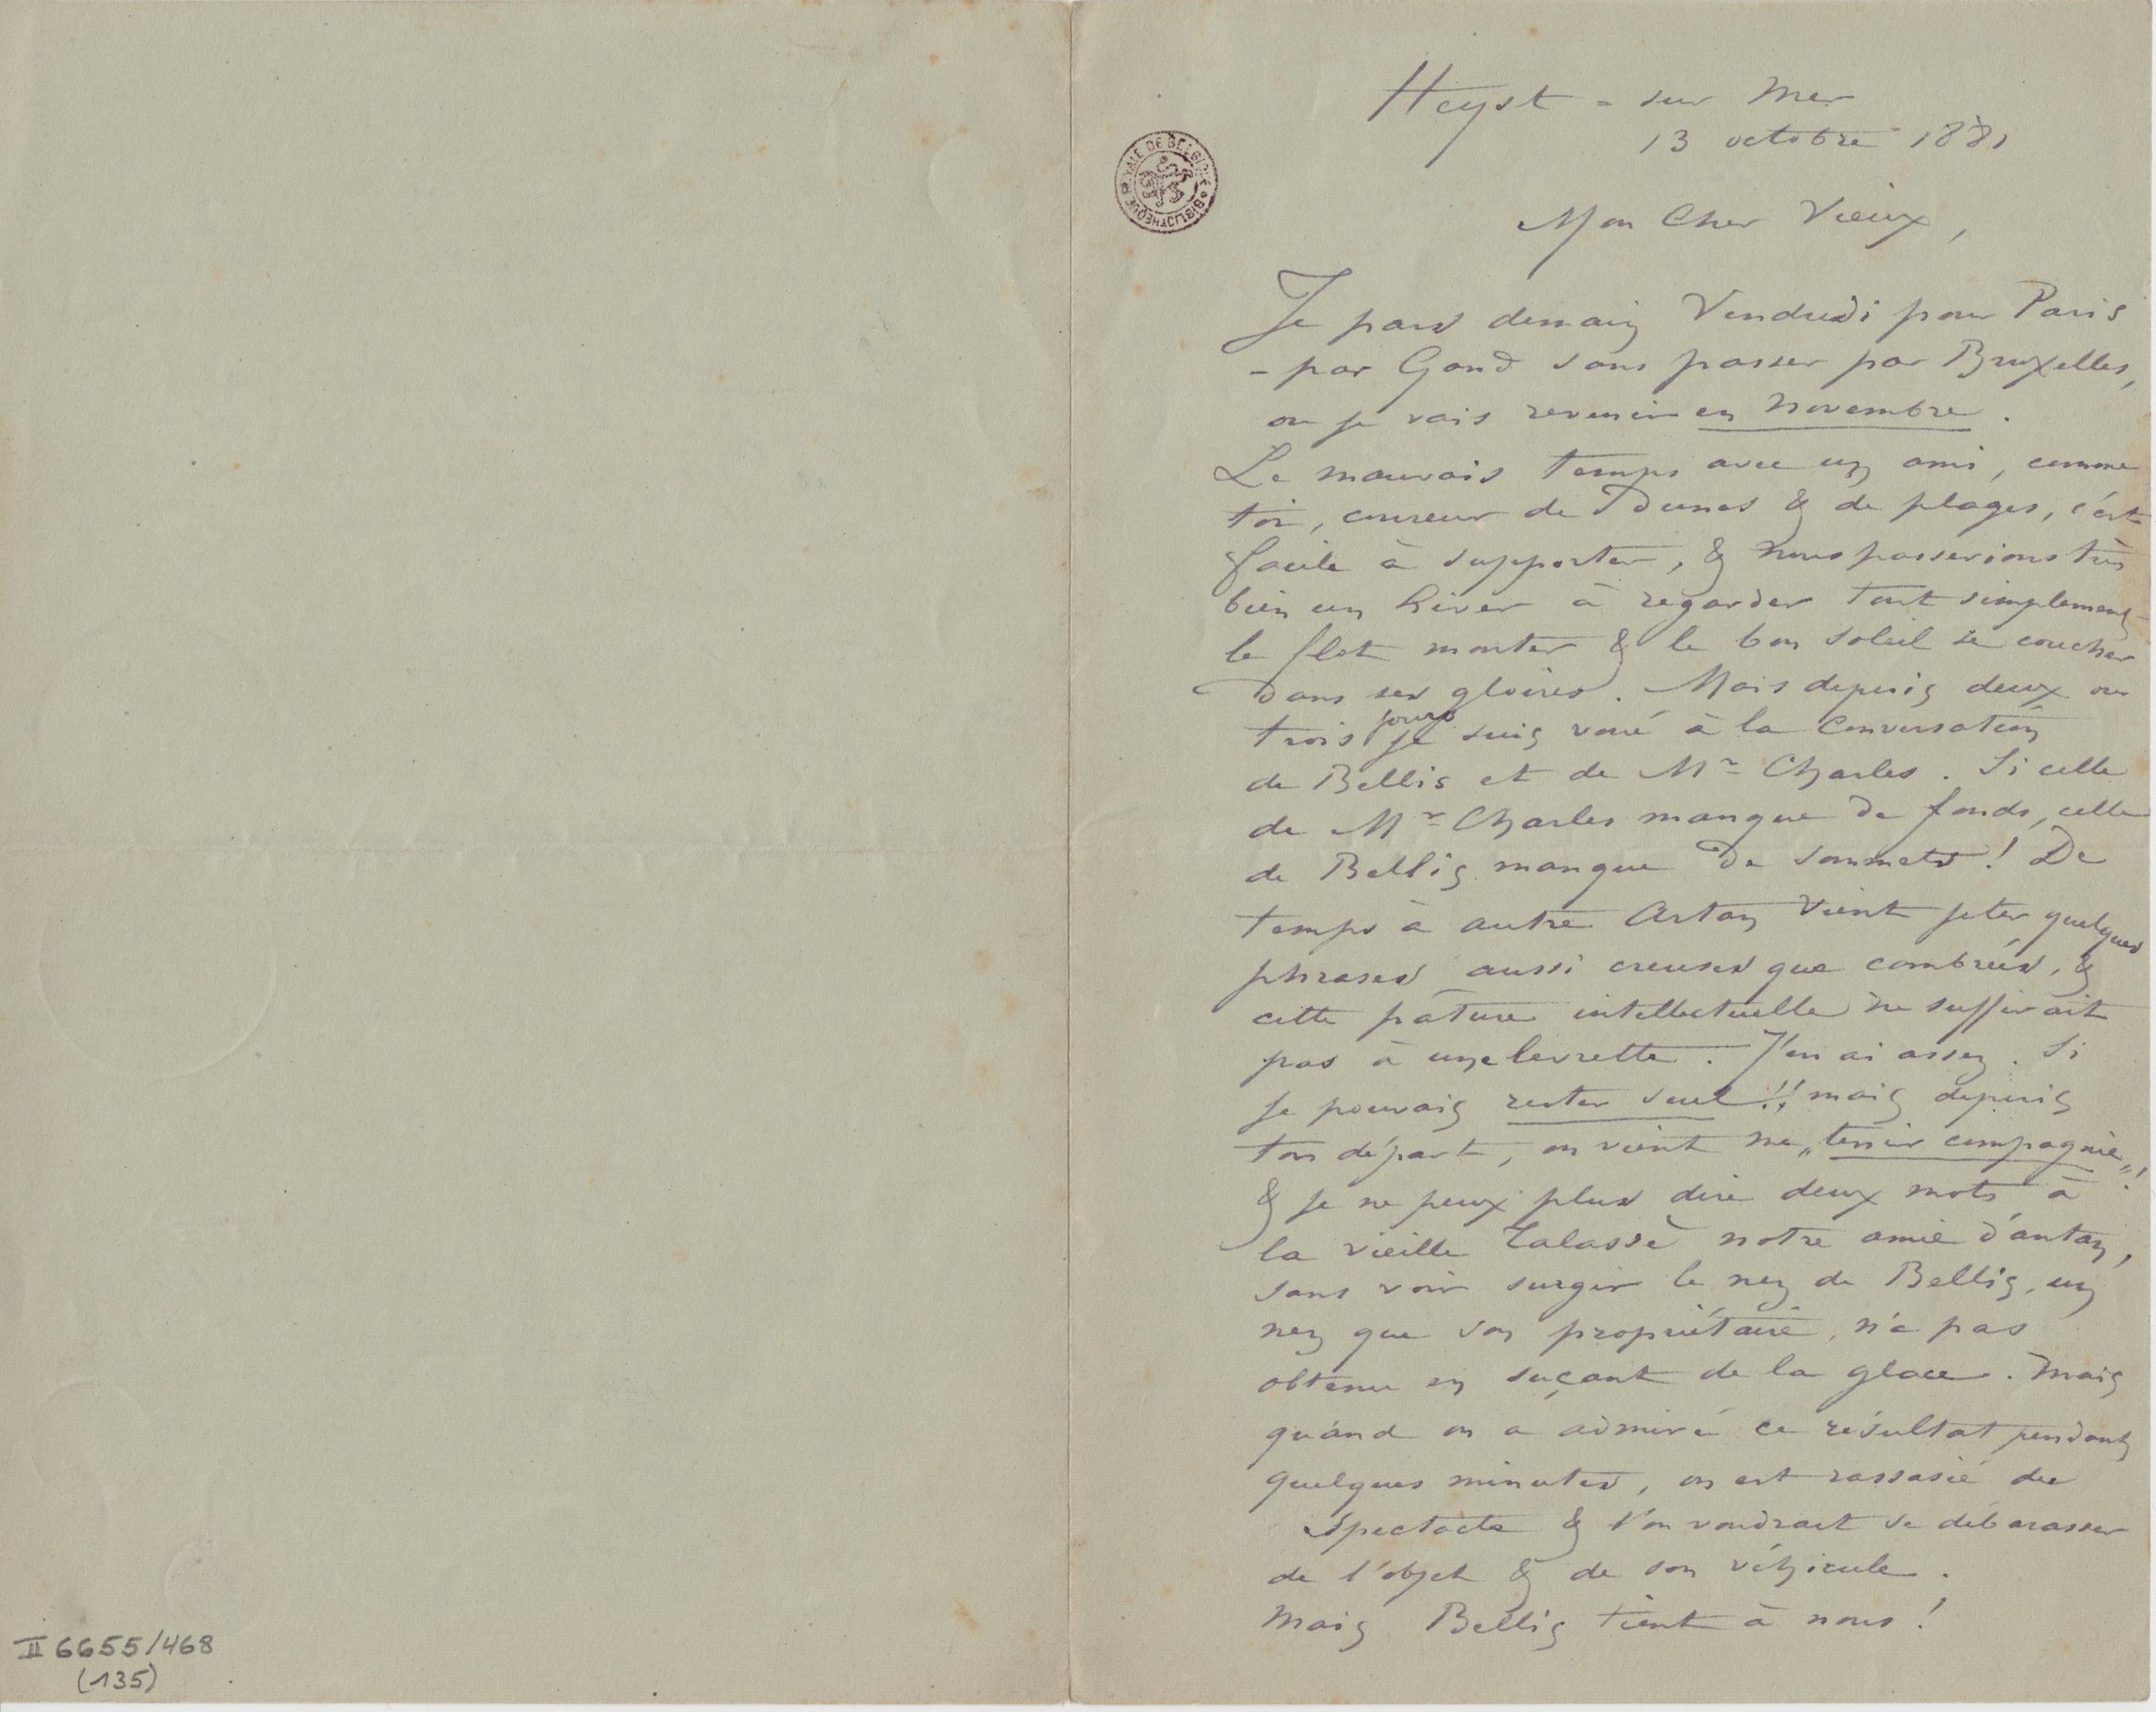 Heyst = sur Mer
13 octobre 1881
Mon Cher Vieux,
Je pars demain Vendredi pour Paris
– par Gand sans passer par Bruxelles,
ou je vais revenir en Novembre.
Le mauvais temps avec un ami, comme
toi, coureur de Dunes & de plages, c'est
facile à supporter, & nous passerions très
bien un hiver à regarder tout simplement
le flot monter & le bon soleil se coucher
dans ses gloires. Mais depuis deux ou
trois jours je suis voué à la Conversation
de Bellis et de Mr Charles. Si celle
de Mr Charles manque de fonds, celle
de Bellis manque de sommets! De
temps à autre Artan vient jeter quelques
phrases aussi creuses que cambrées, &
cette pâture intellectuelle ne suffirait
pas à une levrette. J'en ai assez. Si
je pouvais rester seul!! mais depuis
ton départ, on vient me „tenir compagnie„!
& je ne peux plus dire deux mots à
la vieille Talassè notre amie d'antan,
sans voir surgir le nez de Bellis, un
nez que son propriétaire, n'a pas
obtenu en suçant de la glace. Mais
quand on a admiré ce résultat pendant
quelques minutes, on est rassasié du
spectacle & l'on voudrait se débarasser
de l'objet & de son véhicule.
Mais Bellis tient à nous!
BIBLIOTHEQUE ROYALE DE BELGIQUE
II 6655/468
(135)